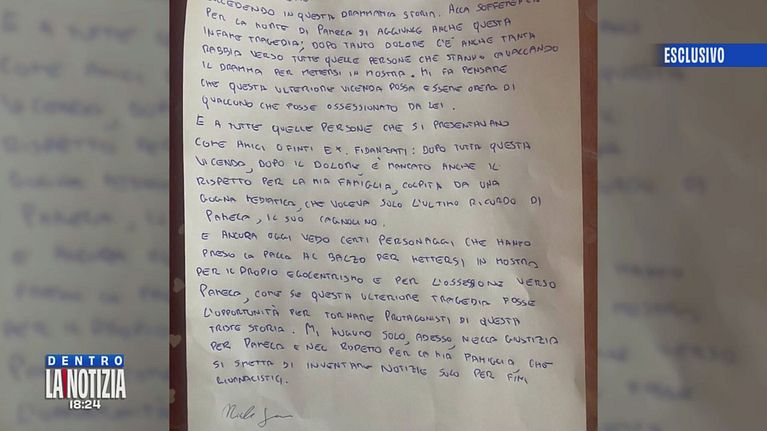 CCEDENDO IN QUESTA DRAMMATICA STORIA. ALLA SOFFERENZA
PER LA MORTE DI PAMELA SI AGGIUNGE ANCHE QUESTA
INFAME TRAGEDIA; DOPO TANTO DOLORE C'È ANCHE TANTA
RABBIA VERSO TUTTE QUELLE PERSONE CHE STANNO CAVALCANDO
IL DRAMMA PER METTERSI IN MOSTRA. MI FA PENSARE
CHE QUESTA ULTERIORE VICENDA POSSA ESSERE OPERA DI
QUALCUNO CHE FOSSE OSSESSIONATO DA LEI.
E A TUTTE QUELLE PERSONE CHE SI PRESENTAVANO
COME AMICI O FINTI EX. FIDANZATI: DOPO TUTTA QUESTA
VICENDA, DOPO IL DOLORE È MANCATO ANCHE IL
RISPETTO PER LA MIA FAMIGLIA, COLPITA DA UNA
GOGNA MEDIATICA, CHE VOLEVA SOLO L'ULTIMO RICORDO DI
PAMELA, IL SUO CAGNOLINO.
E ANCORA OGGI VEDO CERTI PERSONAGGI CHE HANNO
PRESO LA PALLA AL BALZO PER METTERSI IN MOSTRA
PER IL PROPIO EGOCENTRISMO E PER L'OSSESSIONE VERSO
PAMELA, COME SE QUESTA ULTERIORE TRAGEDIA FOSSE
L'OPPORTUNITÀ PER TORNARE PROTAGONISTI DI QUESTA
TRISTE STORIA. MI AUGURO SOLO, ADESSO, NELLA GIUSTIZIA
PER PAMELA E NEL RISPETTO PER LA MIA FAMIGLIA CHE
SI SMETTA DI INVENTARE NOTIZIE SOLO PER FINI
GIORNALISTICI.
ESCLUSIVO
DENTRO
LA NOTIZIA
18:24